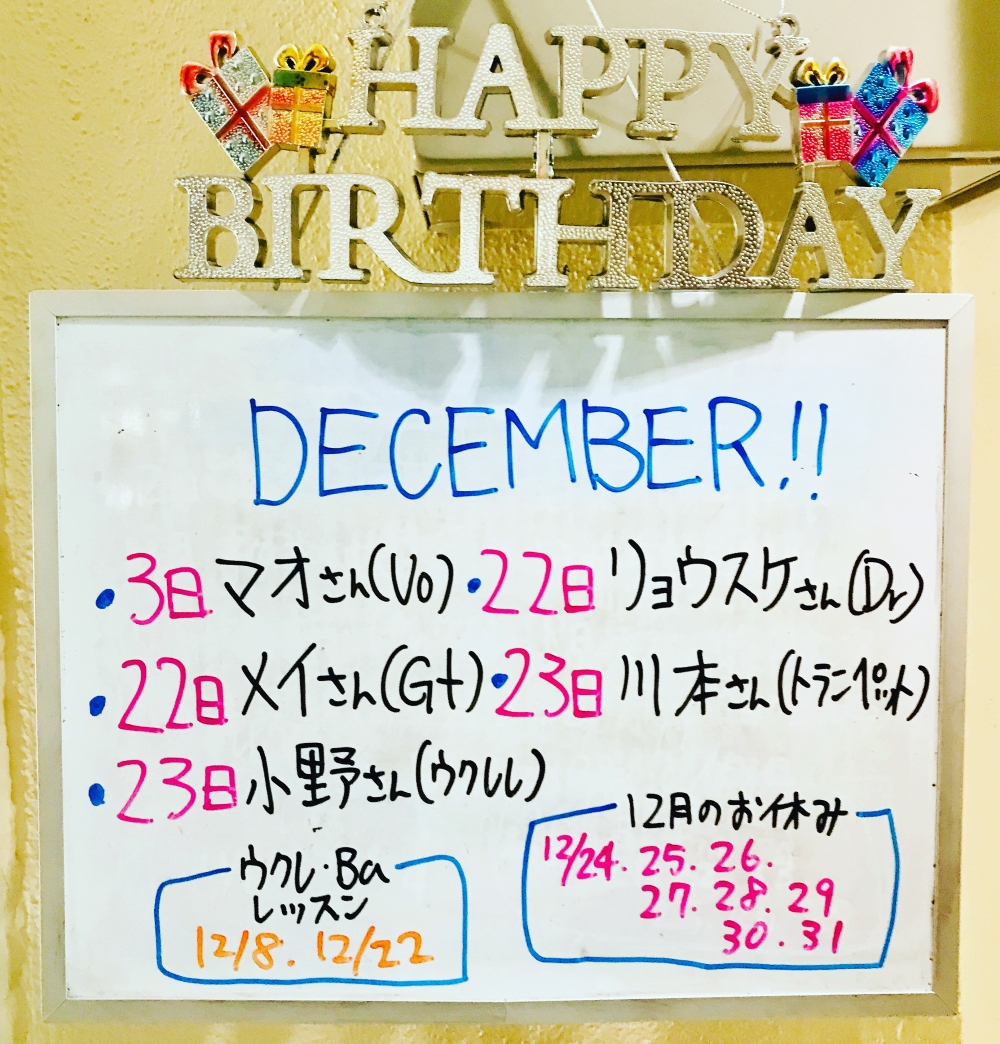 HAPPY
BIRTHDAY
DECEMBER!!
・3日マオさん(Vo)・22日リョウスケさん(Dr)
・22日メイさん(Gt)・23日川本さん(トランペット)
・23日小野さん(ウクレレ)
ウクレ・Ba
レッスン
12/8. 12/22
12月のお休み
12/24. 25. 26.
27. 28. 29
30. 31